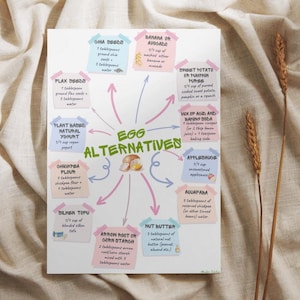 CHIA SEEDS
1 tablespoon
ground chia
seeds +
3 tablespoons
water
BANANA OR
AVOCADO
1/4 cup of
mashed
banana or
avocado
SWEET POTATO
OR PUMPKIN
PUREE
1/4 cup of pureed,
cooked sweet potato,
pumpkin or squash
FLAX SEEDS
1 tablespoon
ground flax seeds +
3 tablespoons
water
MIX OF ACID AND
BAKING SODA
1 tablespoon vinegar
baking soda
PLANT BASED
NATURAL
YOGURT
1/4 cup vegan
yogurt
EGG
ALTERNATIVES
APPLESAUCE
1/4 cup of
unsweetened
applesauce
CHICKPEA
FLOUR
3 tablespoons
water
AQUAFABA
3 tablespoons of
reserved chickpea
(or other tinned
beans) water
SILKEN TOFU
1/4 cup of
blended silken
tofu
ARROW ROOT OR
CORN STARCH
2 tablespoons
arrow root/corn
starch mixed
with 3
tablespoons water
NUT BUTTER
3 tablespoons of
natural nut
butter (peanut,
almond etc.)